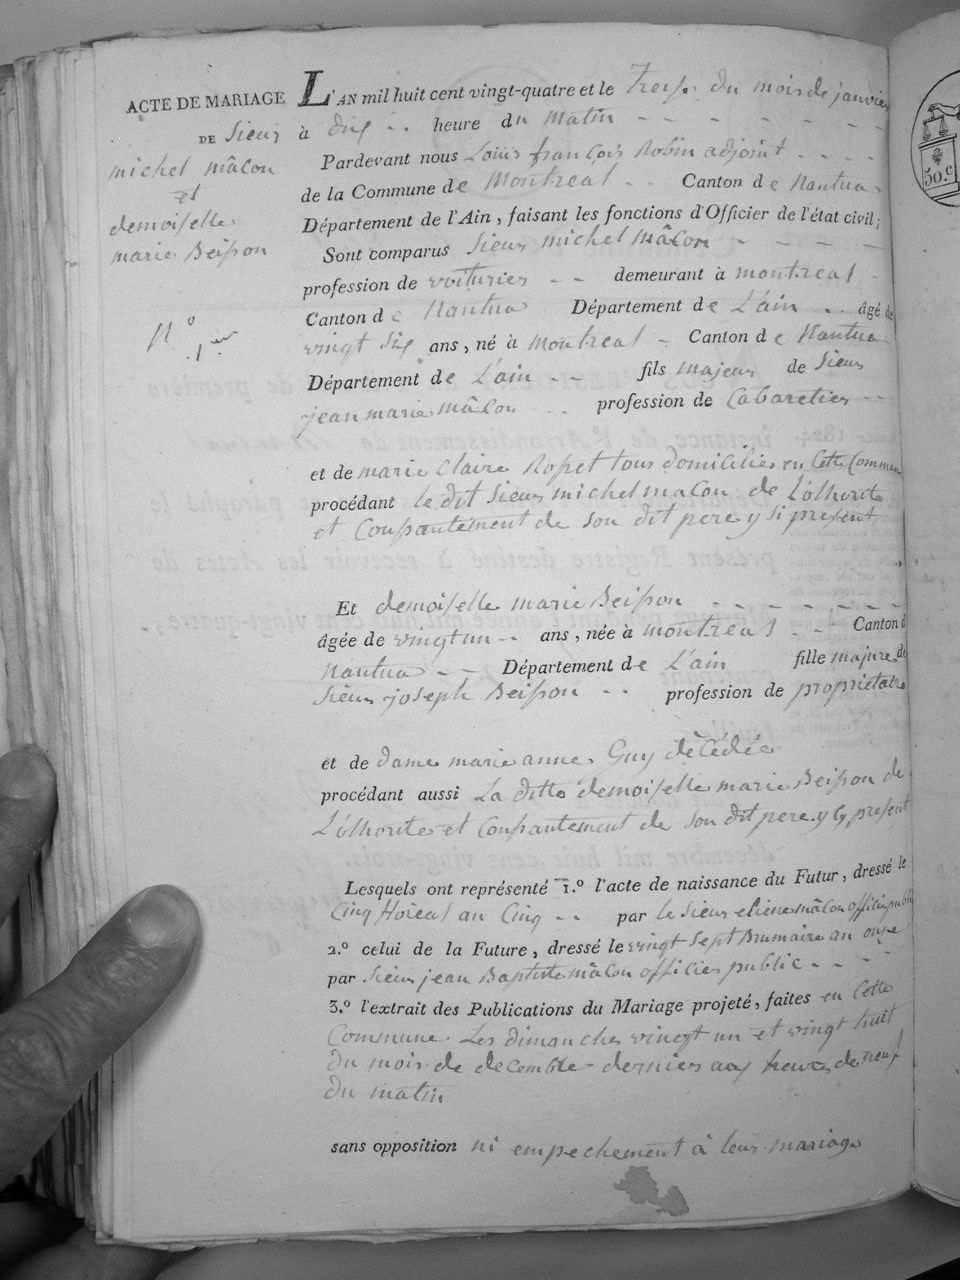 ACTE DE MARIAGE
DE Sieur
michel mâcon
et
demoiselle
marie Beisson
N° 1er
L'AN mil huit cent vingt-quatre et le Treize du mois de janvier
à dix heure du matin
Pardevant nous Louis françois Robin adjoint
de la Commune de Montreal Canton de Nantua
Département de l'Ain, faisant les fonctions d'Officier de l'état civil;
Sont comparus Sieur michel mâcon
profession de voiturier demeurant à montreal
Canton de Nantua Département de L'ain âgé de
vingt six ans, né à Montreal Canton de Nantua
Département de L'ain fils majeur de Sieur
jean marie mâcon profession de Cabaretier
et de marie Claire Ropet tous domiciliés en Cette Commune
procédant le dit Sieur michel macon de L'othorité
et Consantement de son dit pere y si present
Et demoiselle marie Beisson
âgée de vingt un ans, née à montreal Canton d
Nantua Département de L'ain fille majure de
Sieur joseph Beisson profession de proprietaire
et de dame marie anne Guy dècédée
procédant aussi La ditte demoiselle marie Beisson de
L'othorité et Consantement de son dit pere y Cy present
Lesquels ont représenté 1.° l'acte de naissance du Futur, dressé le
Cinq floreal an Cinq par le Sieur etiene mâcon officier public
2.° celui de la Future, dressé le vingt sept Brumaire an onze
par Sieur jean Baptiste mâcon officier public
3.° l'extrait des Publications du Mariage projeté, faites en Cette
Commune Les dimanches vingt un et vingt huit
du mois de decembre dernier aux heures de neuf
du matin
sans opposition ni empechement à leur mariage
50.c